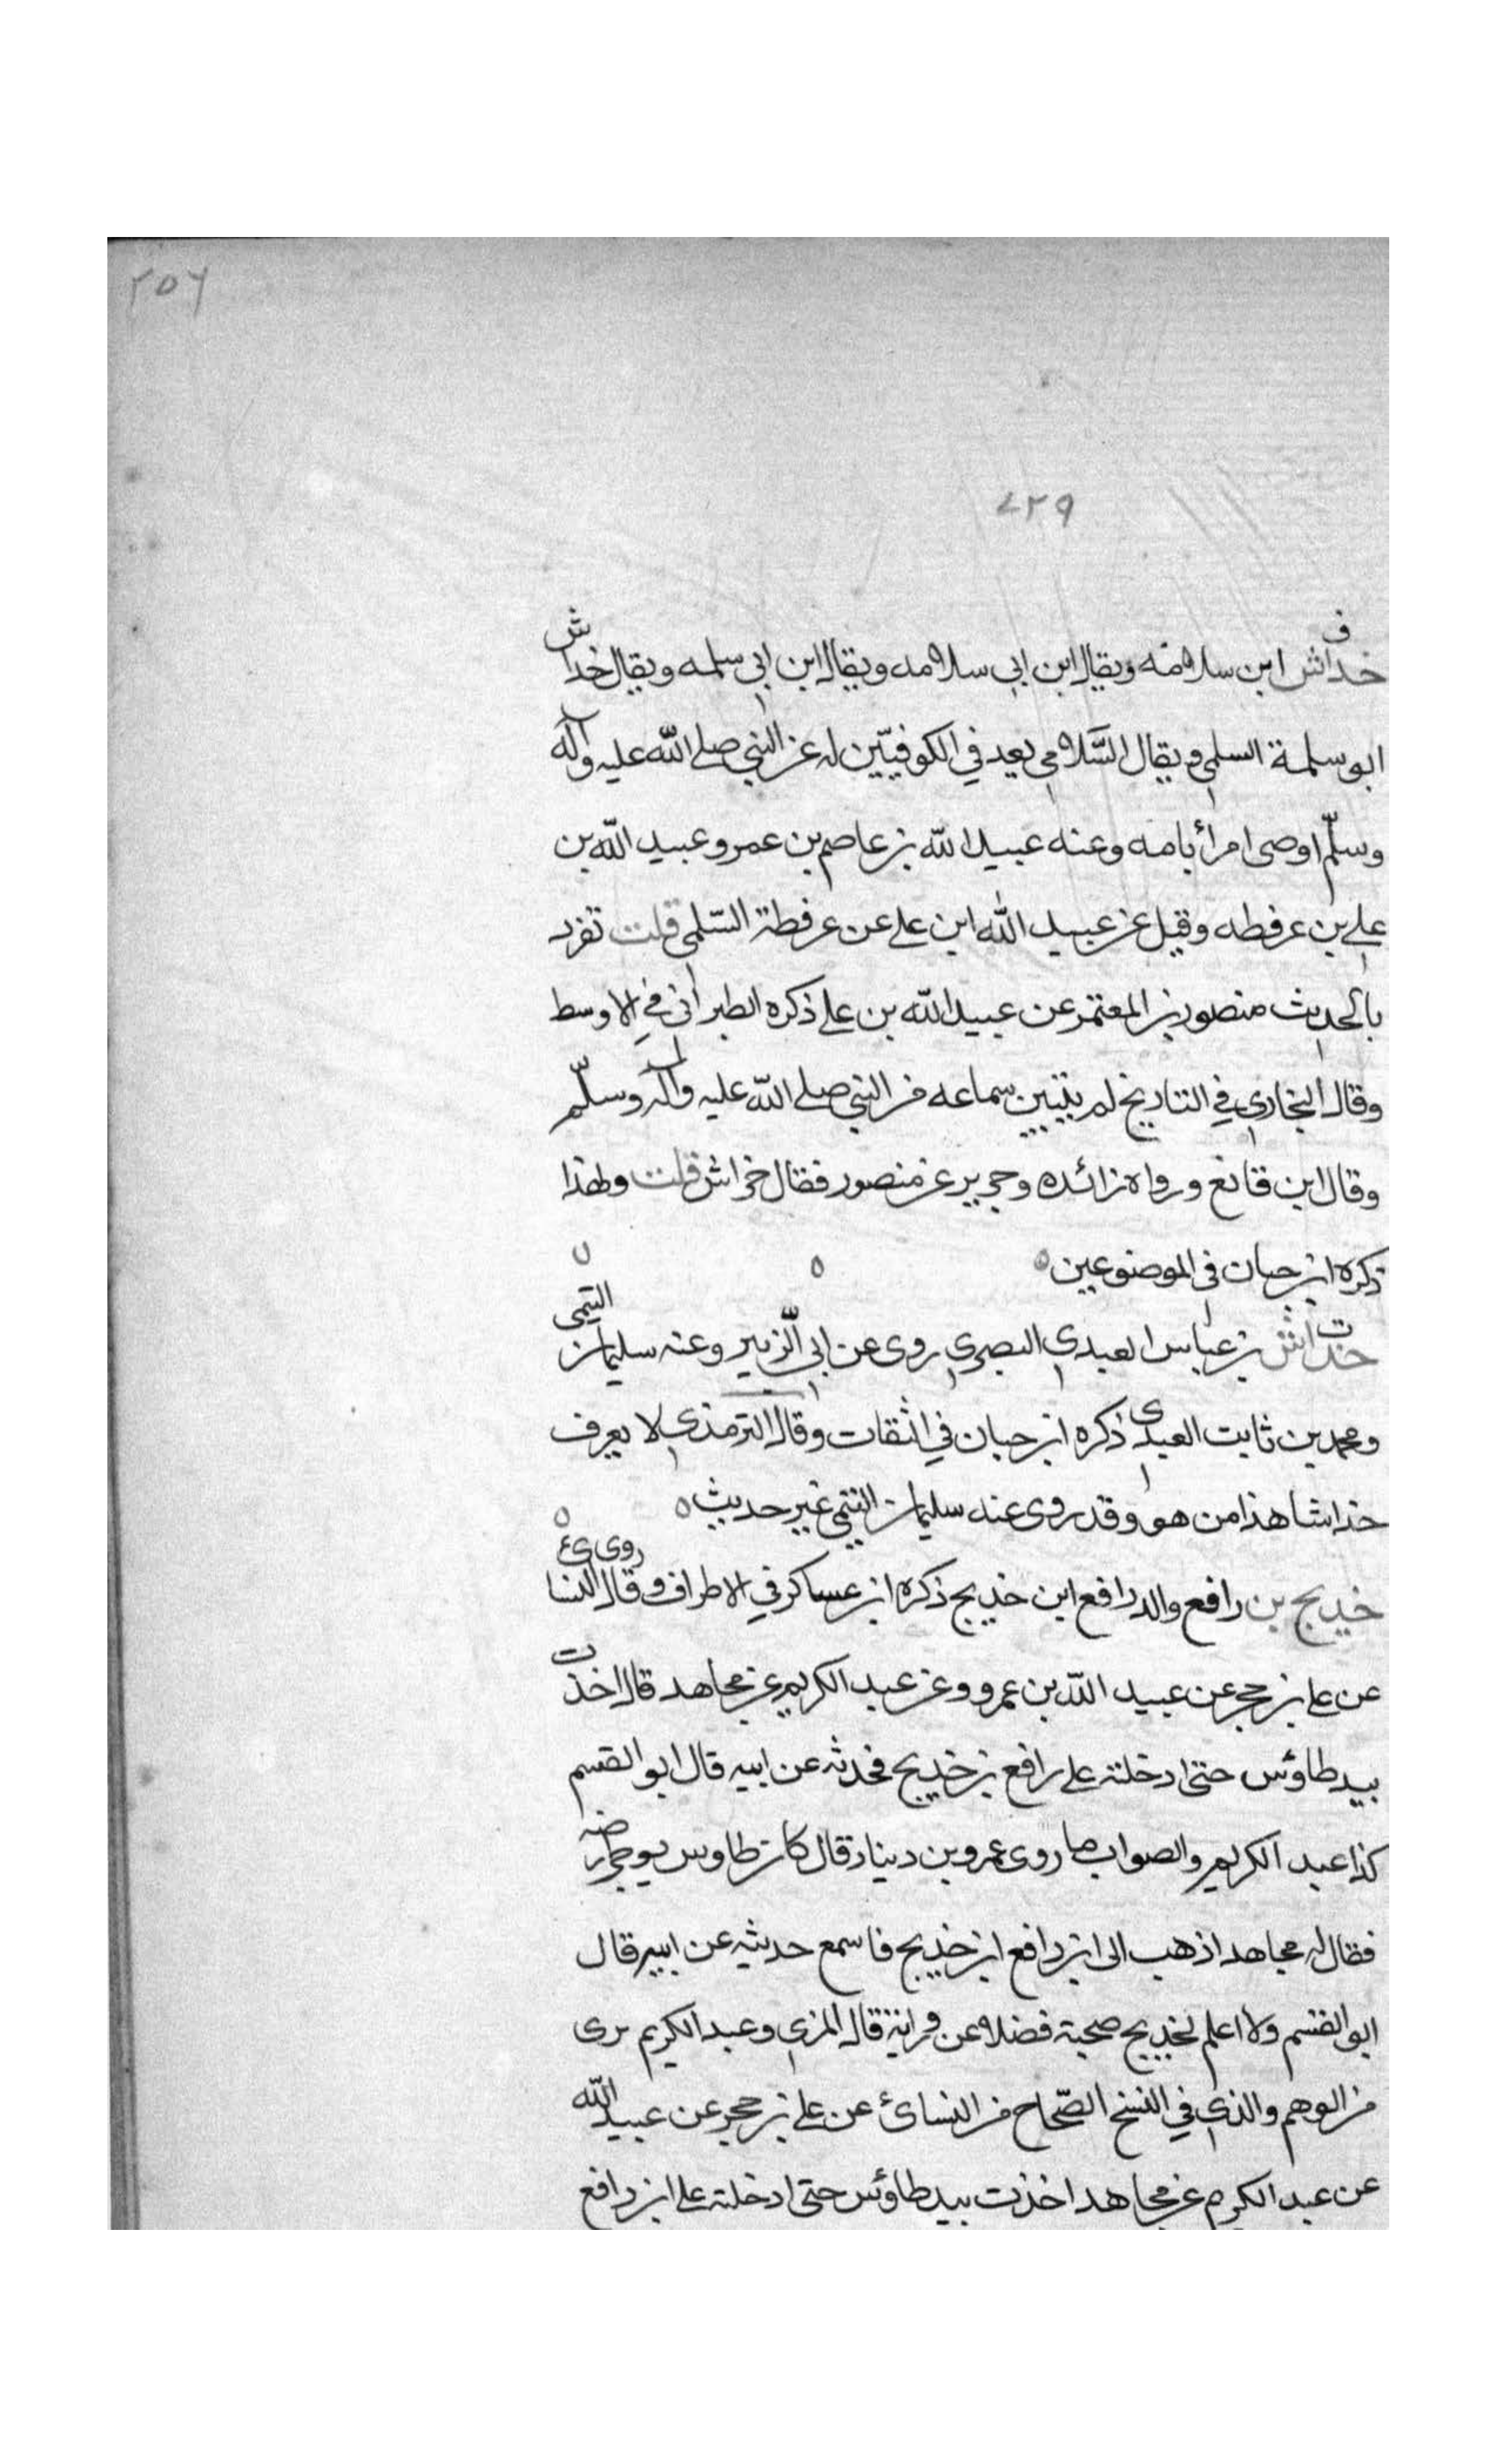 ٢٥٦
٤٢٩
ق
خداش ابن سلامة ويقال ابن ابى سلامه ويقال ابن ابى سلمه ويقال خداش
ابو سلمة السلمى ويقال السَّلامى يعد في الكوفيّين له عن النبي صلى الله عليه وآله
وسلّم اوصى امرأ بامه وعنه عبيد الله بن عاصم بن عمر وعبيد الله بن
على بن عرفطه وقيل عن عبيد الله ابن على عن عرفطة السّلمى قلت تفرد
بالحديث منصور بن المعتمر عن عبيد الله بن على ذكره الطبرانى في الاوسط
وقال البخارى في التاريخ لم يتبين سماعه من النبي صلى الله عليه وآله وسلّم
وقال ابن قانع ورواه زائده وجرير عن منصور فقال خراش قلت ولهذا
ذكره ابن حبان فى الموضوعين ٥ ٥ ٥
ت
خداش بن عياس العبدى البصرى روى عن ابى الزّبير وعنه سليمان التيمى
ومحمد بن ثابت العبدى ذكره ابن حبان في الثقات وقال الترمذى لا يعرف
خداشا هذا من هو وقد روى عنه سليمان التيمى غير حديث ٥ ٥
خديج بن رافع والد رافع ابن خديج ذكره ابن عساكر في الاطراف وقال النسائ روى
عن على بن حجر عن عبيد الله بن عمرو وعن عبد الكريم عن مجاهد قال اخذت
بيد طاؤس حتى ادخلته على رافع بن خديج فحدثه عن ابيه قال ابو القسم
كذا عبد الكريم والصواب ما روى عمرو بن دينار قال كان طاوس يوجر ارضه
فقال له مجاهد اذهب الى ابن رافع ابن خديج فاسمع حديثه عن ابيه قال
ابو القسم ولا اعلم لخديج صحبة فضلا عن قال المزى وعبد الكريم برى
من الوهم والذى في النسخ الصّحاح من النسائ عن على بن حجر عن عبيد الله
عن عبد الكريم عن مجاهد اخذت بيد طاؤس حتى ادخلته على ابن رافع